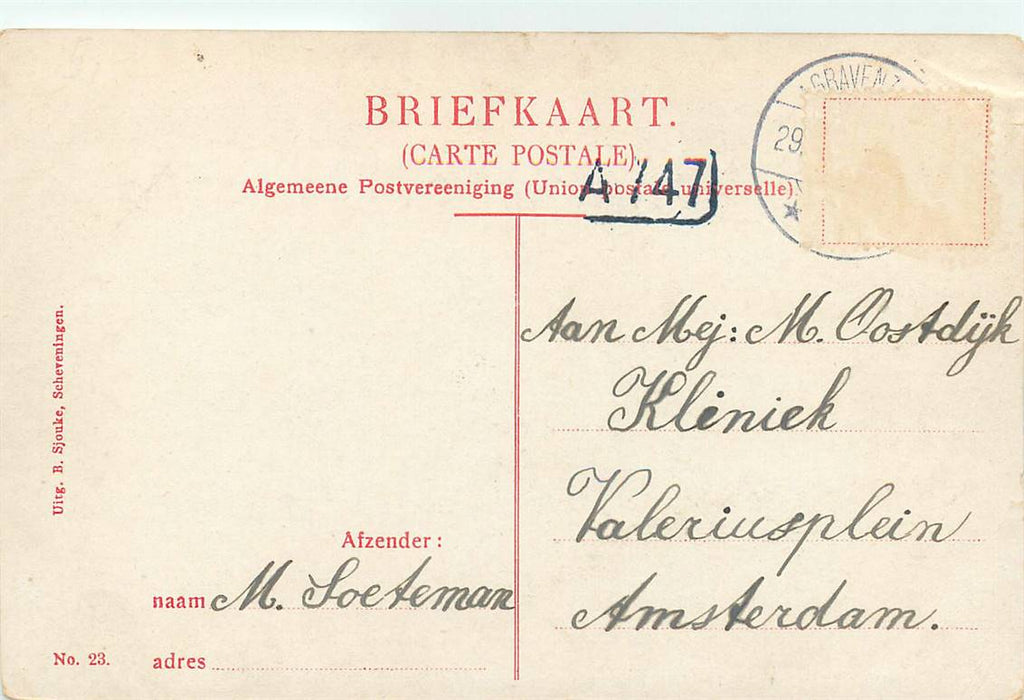 BRIEFKAART.
(CARTE POSTALE).
Algemeene Postvereeniging (Union postale universelle)
A 147
29
Aan Mej: M. Oostdijk
Kliniek
Valeriusplein
Amsterdam.
Uitg. B. Sjouke, Scheveningen.
Afzender:
naam M. Soeteman
No. 23.
adres